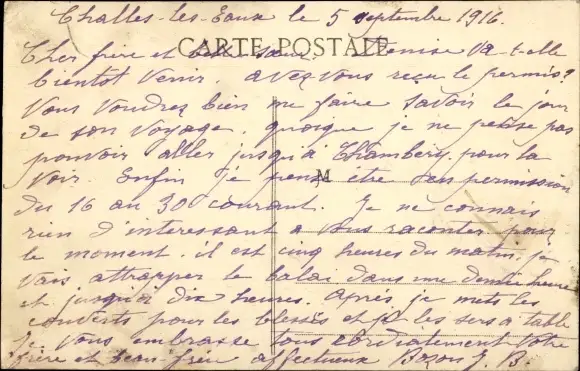 Challes-les-Eaux le 5 septembre 1916.
CARTE POSTALE
Cher frère et belle sœur. Denise va-t-elle
bientôt venir. avez vous reçu le permis?
Vous voudrez bien me faire savoir le jour
de son voyage. quoique je ne pense pas
pouvoir aller jusqu'à Chambéry pour la
voir. Enfin je pense être en permission
M
du 16 au 30 courant. Je ne connais
rien d'interessant a vous raconter pour
le moment. il est cinq heures du matin. je
vais attrapper le balai dans une demie heure
et jusqu'a dix heures. Après je mets les
couverts pour les blessés et je les sers a table
Je vous embrasse tous cordialement votre
frère et beau-frère affectueux Bozon J. B.